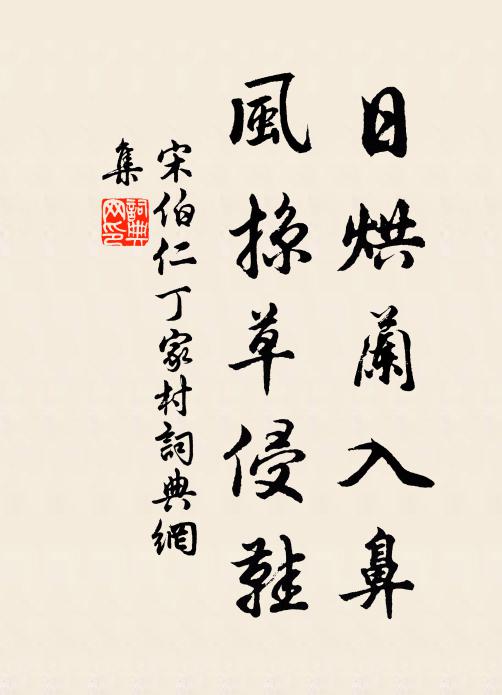 日烘蘭入鼻
風掠草侵鞋
宋伯仁丁家村詞典網
集
詞典
网印